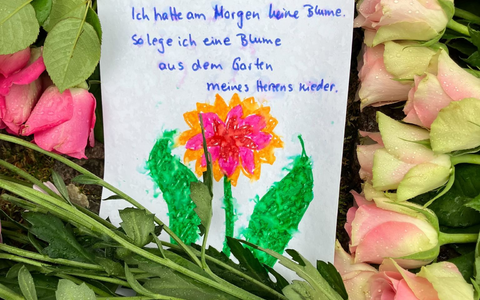 Ich hatte am Morgen keine Blume.
So lege ich eine Blume
aus dem Garten
meines Herzens nieder.